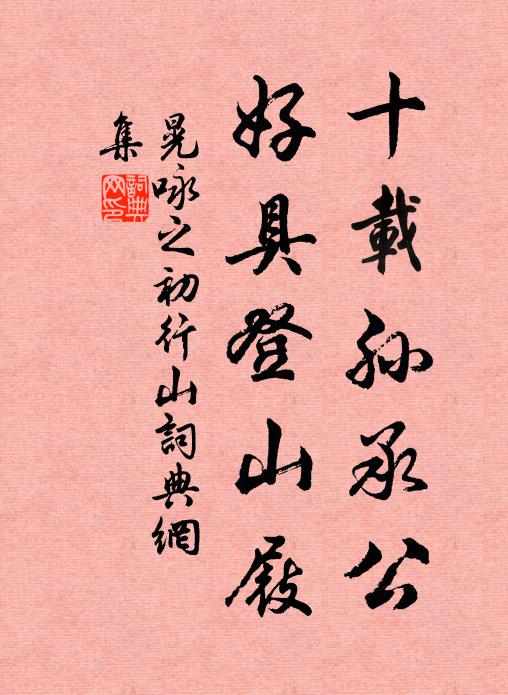 十載孫承公
好具登山屐
晁咏之初行山詞典網
集
詞典
网印